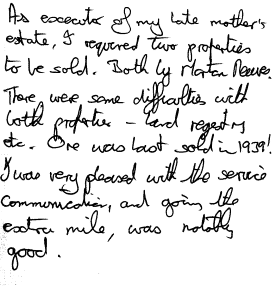 As executor of my late mother's
estate, I required two properties
to be sold. Both by Morton Reeves.
There were some difficulties with
both properties - land registry
etc. One was last sold in 1939!
I was very pleased with the service
communication, and going the
extra mile, was notably
good.